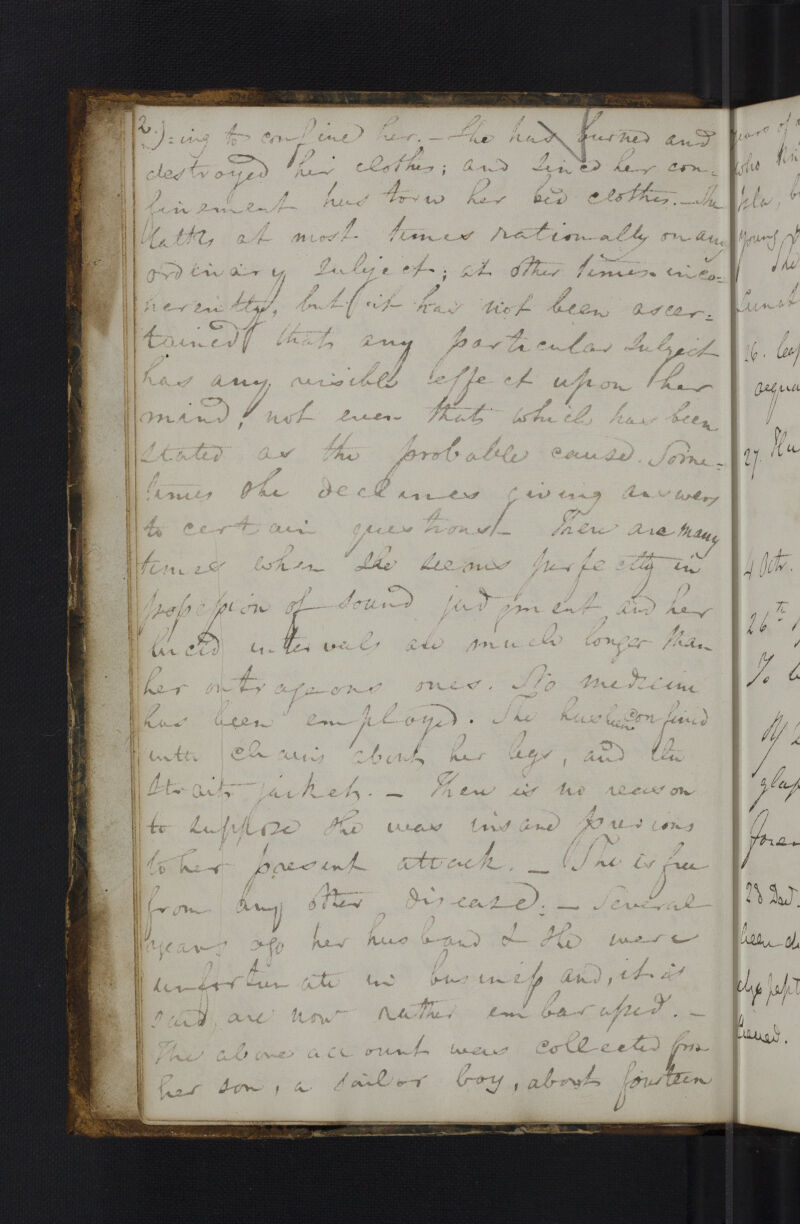 2.)=ing to confine her. – She has burned and
destroyed her clothes; and since her con=
finement has torn her bed clothes. – She
talks at most times rationally on any
ordinary subject; at other times inco=
herently, but it has not been ascer=
tained that any particular subject
has any visible effect upon her
mind, not even that which has been
stated as the probable cause. Some=
times she declines giving answers
to certain questions – There are many
times when she seems perfectly in
possession of sound judgment and her
lucid intervals are much longer than
her outrageous ones. No medicine
has been employed. She has been confined
with chains about her legs, and the
strait jacket. – There is no reason
to suppose she was insane previous
to her present attack. – She is free
from any other disease. – Several
years ago her husband & she were
unfortunate in business and, it is
said, are now rather embarassed. –
The above account was collected from
her son, a sailor boy, about fourteen
years of
who
young
She
Lunat
26.
27.
4 Octr.
26th
To
glass
28 Decr.
been